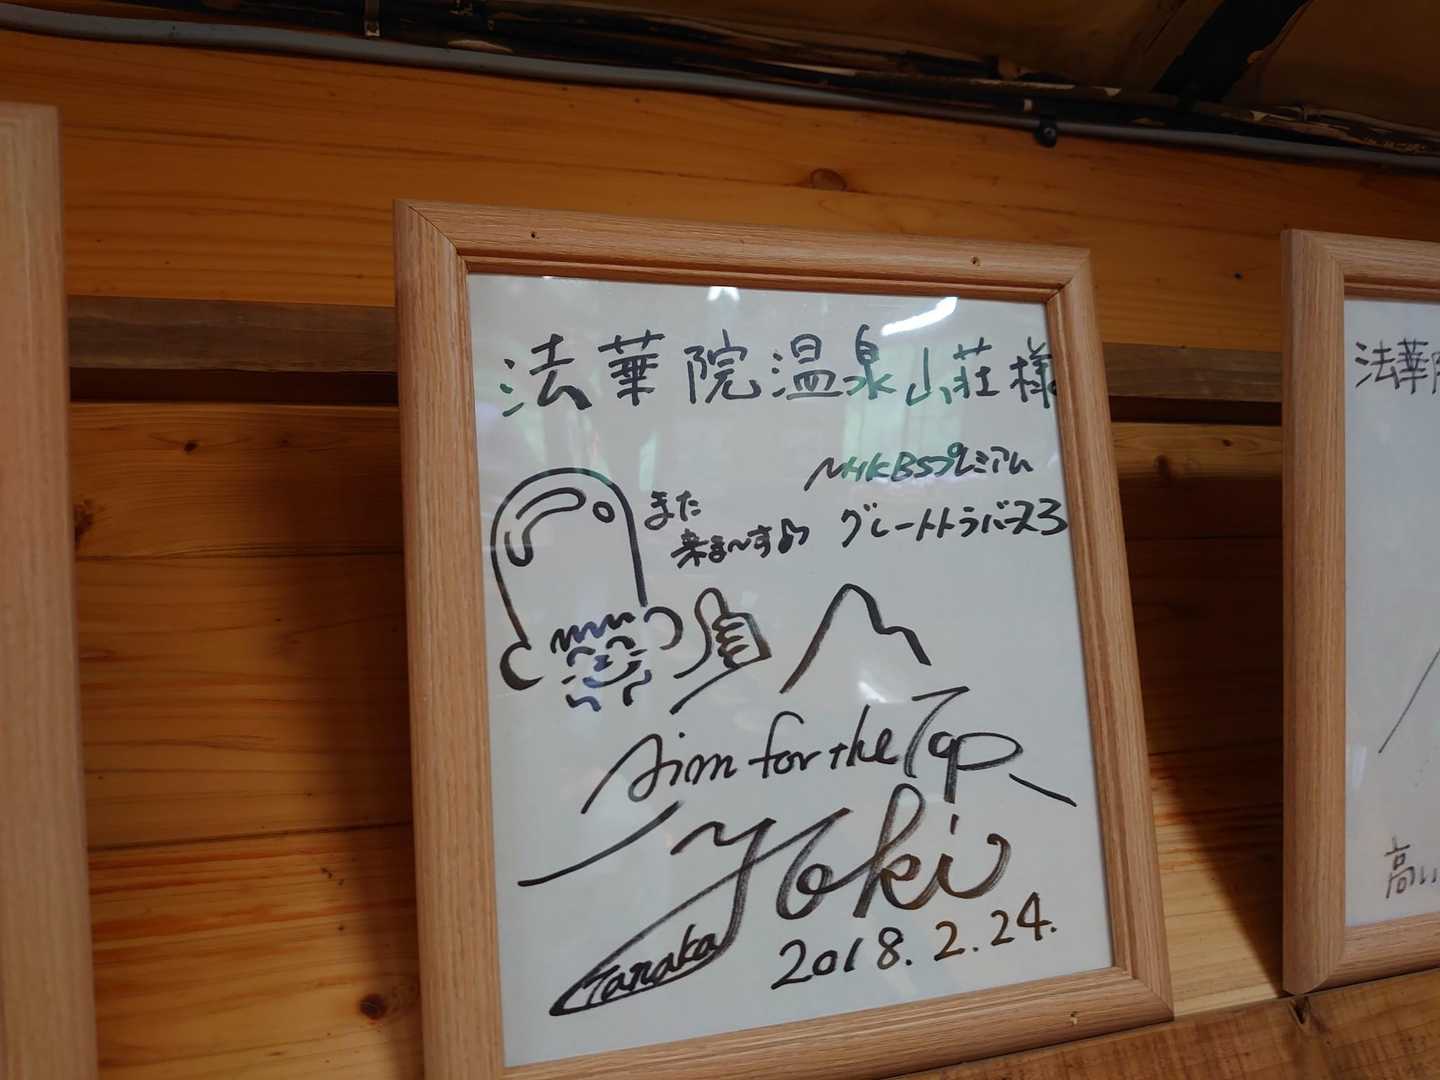 法華院温泉山荘様
NHKBSプレミアム
グレートトラバース3
また
来ま〜す♪
Aim for the Top
Yoki
Tanaka
2018.2.24.
法華
高い